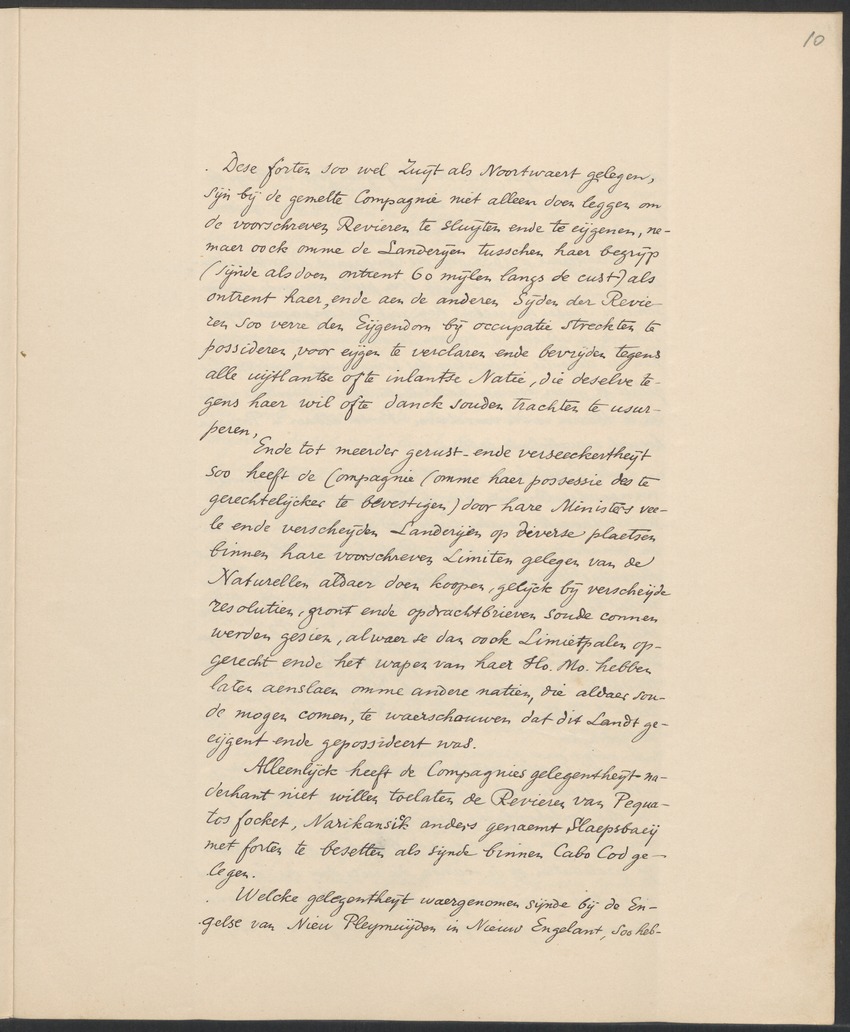 10
. Dese forten soo wel Zuijt als Noortwaert gelegen,
sijn bij de gemelte Compagnie niet alleen doen leggen om
de voorschreven Revieren te sluijten ende te eijgenen, ne-
maer oock omme de Landerijen tusschen haer begrijp
(sijnde als doen ontrent 60 mijlen langs de cust) als
ontrent haer, ende aen de anderen Sijden der Revie-
ren soo verre den Eijgendom bij occupatie streckten te
possideren, voor eijgen te verclaren ende bevrijden tegens
alle uijtlantse ofte inlantse Natie, die deselve te-
gens haer wil ofte danck souden trachten te usur-
peren,
Ende tot meerder gerust- ende verseeckertheijt
soo heeft de Compagnie (omme haer possessie des te
gerechtelijcker te bevestigen) door hare Ministers vee-
le ende verscheijden Landerijen op diverse plaetsen
binnen hare voorschreven Limiten gelegen van de
Naturellen aldaer doen koopen, gelijck bij verscheijde
resolutien, gront ende opdrachtbrieven soude connen
werden gesien, alwaer se dan oock Limietpalen op-
gerecht ende het wapen van haer Ho. Mo. hebben
laten aenslaen omme andere natien, die aldaer sou-
de mogen comen, te waerschouwen dat dit Landt ge-
eijgent ende gepossideert was.
Alleenlijck heeft de Compagnies gelegentheijt na-
derhant niet willen toelaten de Revieren van Pequa-
tos focket, Narikansik anders genaemt Slaepsbaeij
met forten te besetten als sijnde binnen Cabo Cod ge-
legen.
. Welcke gelegentheijt waergenomen sijnde bij de En-
gelse van Nieu Pleymuijden in Nieuw Engelant, soo heb-